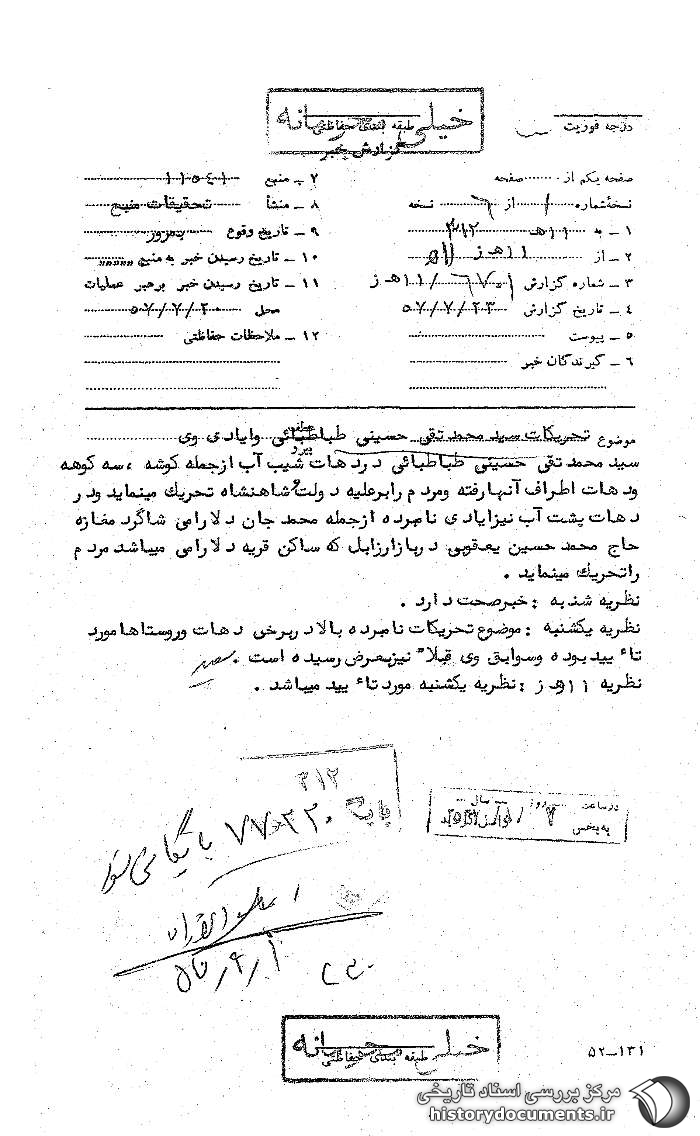 خیلی محرمانه
طبقه بندی حفاظتی
گزارش خبر
درجه فوریت
صفحه یکم از صفحه
نسخه‌شماره ۱ از ۶ نسخه
۱ ـ به ۱۱هـ ۳۱۲
۲ ـ از ۱۱هـ ز
۳ ـ شماره گزارش ۶۷۰۱/۱۱هـ ز
۴ ـ تاریخ گزارش ۵۷/۷/۲۳
۵ ـ پیوست
۶ ـ گیرندگان خبر
۷ ـ منبع ۱۱۵۴۱
۸ ـ منشأ تحقیقات منبع
۹ ـ تاریخ وقوع بمرور
۱۰ ـ تاریخ رسیدن خبر به منبع
۱۱ ـ تاریخ رسیدن خبر برهبر عملیات
محل ۵۷/۷/۲۰
۱۲ ـ ملاحظات حفاظتی
موضوع تحریکات سید محمد تقی حسینی طباطبائی وایادی وی
سید محمد تقی حسینی طباطبائی در دهات شیب آب ازجمله کوشه ، سه کوهه
ودهات اطراف آنها رفته ومردم را برعلیه دولت و شاهنشاه تحریک مینماید ودر
دهات پشت آب نیز ایادی نامبرده ازجمله محمد جان دلارامی شاگرد مغازه
حاج محمد حسین یعقوبی در بازار زابل که ساکن قریه دلارامی میباشد مردم
را تحریک مینماید .
نظریه شنبه : خبر صحت دارد .
نظریه یکشنبه : موضوع تحریکات نامبرده بالا در برخی دهات وروستاها مورد
تاء یید بوده وسوابق وی قبلاً نیز بعرض رسیده است .
نظریه ۱۱هـ ز : نظریه یکشنبه مورد تاء یید میباشد .
۳۱۲
۷۷۰۳۲۰ بایگانی شود
در ساعت روز سال
به بخش
خیلی محرمانه
طبقه بندی حفاظتی
۵۲ــ۱۳۱
مرکز بررسی اسناد تاریخی
historydocuments.ir